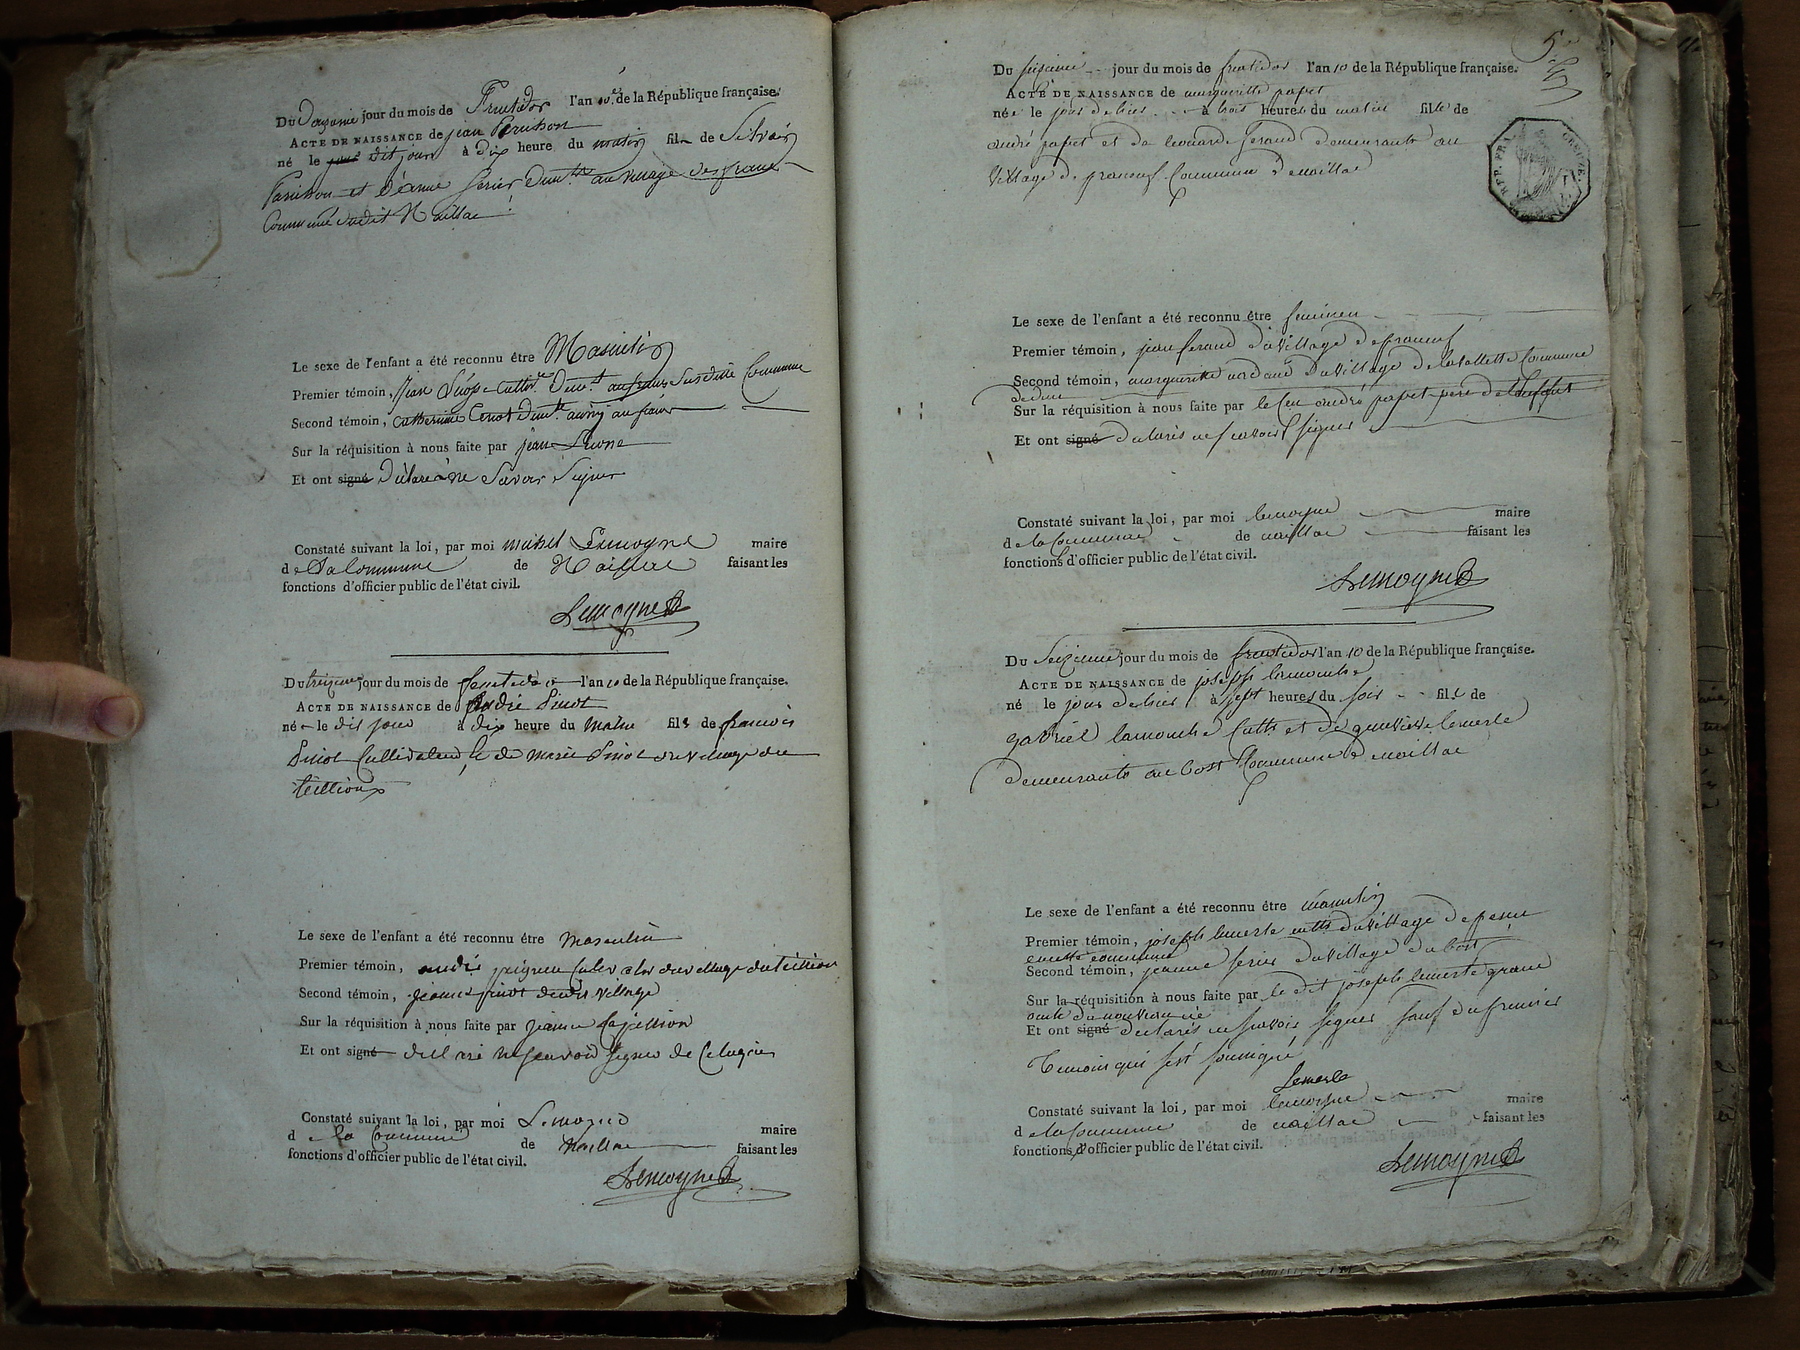 Du jour du mois de Fructidor l'an 10e de la République française.
ACTE DE NAISSANCE de jean
né le dit jour à dix heure du matin fils de Silvain
et au village des
Commune dudit Naillac
Le sexe de l'enfant a été reconnu être Masculin
Premier témoin, Jean susditte Commune
Second témoin, Catherine
Sur la réquisition à nous faite par jean
Et ont signé Déclaré ne Savoir Signer
Constaté suivant la loi, par moi michel Lemoyne maire
de La Commune de Naillac faisant les
fonctions d'officier public de l'état civil.
Lemoyne
Du treizieme jour du mois de l'an 10 de la République française.
ACTE DE NAISSANCE de André Pinot
né le dit jour à dix heure du matin fils de francois
Pinot Cultivateur et de Marie Pinot du village du
teillioux
Le sexe de l'enfant a été reconnu être masculin
Premier témoin, andré du village du
Second témoin, jeanne pinot dudit village
Sur la réquisition à nous faite par
Et ont signé declaré ne savoir signer de
Constaté suivant la loi, par moi Lemoyne maire
de la Commune de Naillac faisant les
fonctions d'officier public de l'état civil.
Lemoyne
5e
Du seizieme jour du mois de fructidor l'an 10 de la République française.
ACTE DE NAISSANCE de margueritte papet
née le jour d'hier à trois heures du matin fille de
andré papet et de leonarde feraud demeurants au
Village de Commune de naillac
Le sexe de l'enfant a été reconnu être feminin
Premier témoin, jean feraud du village de
Second témoin, marguerite du village de la Vallette Commune
Sur la réquisition à nous faite par le andré papet pere de l'enfant
Et ont signé declarés ne savoir signer
Constaté suivant la loi, par moi lemoyne maire
de la Commune de naillac faisant les
fonctions d'officier public de l'état civil.
Lemoyne
Du Seizieme jour du mois de fructidor l'an 10 de la République française.
ACTE DE NAISSANCE de joseph lamouche
né le jour d'hier à sept heures du soir fils de
gabriel lamouche et de lemerle
demeurants au bost Commune de naillac
Le sexe de l'enfant a été reconnu être masculin
Premier témoin, joseph lemerle du village de
Second témoin, jeanne du village du bost
Sur la réquisition à nous faite par le dit joseph lemerle grand
oncle du nouveau né
Et ont signé declarés ne savoir signer sauf du premier
Temoin qui s'est soussigné
Lemerle
Constaté suivant la loi, par moi lemoyne maire
de la Commune de naillac faisant les
fonctions d'officier public de l'état civil.
Lemoyne